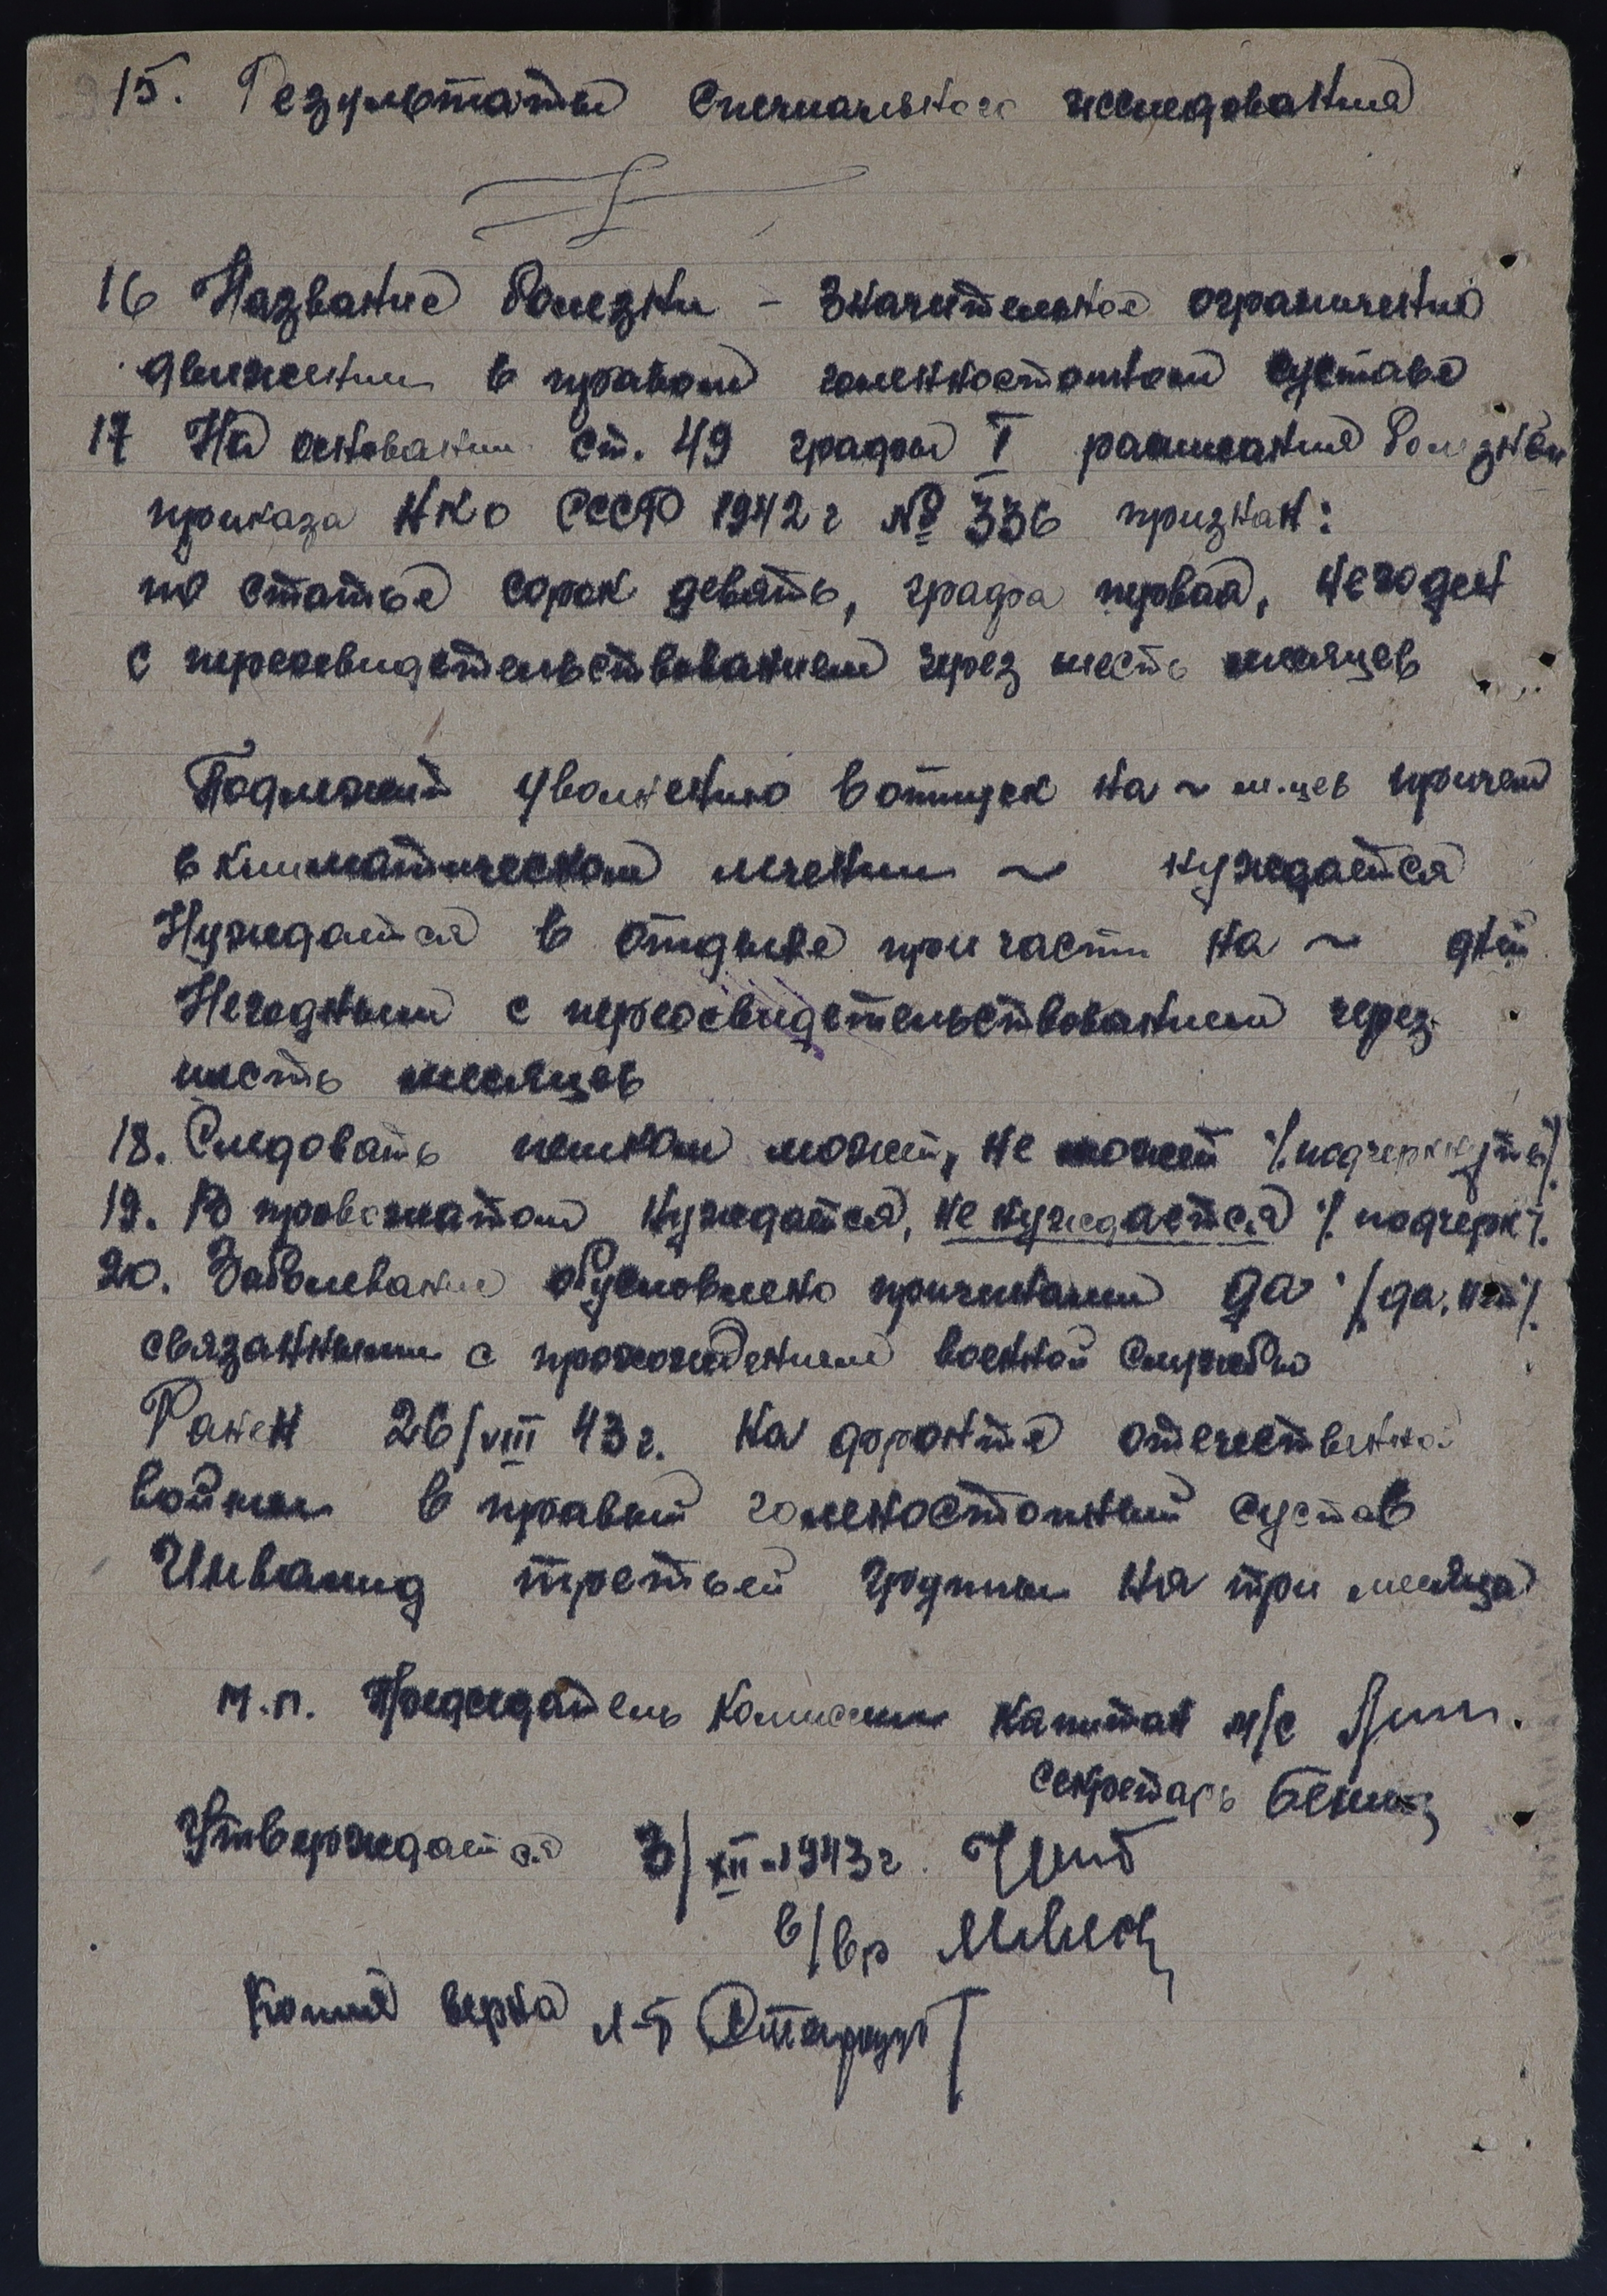 15. Результаты специального исследования
16 Название болезни - Значительное ограничение
движения в правом голенностопном суставе
17 На основании ст. 49 графы I расписания болезней
приказа НКО СССР 1942 г № 336 признан:
по статье сорок девять, графа первая, негоден
с переосвидетельствованием через шесть месяцев
Подлежит увольнению в отпуск на ~ м.цев причем
в климатическом лечении ~ нуждается
Нуждается в отдыхе при части на ~ дней
Негодным с переосвидетельствованием через
шесть месяцев
18. Следовать пешком может, не может %подчеркнуть%
19. В провожатом нуждается, не нуждается % подчерк%
20. Заболевание обусловлено причинами да %да, нет%
связанными с прохождением военной службы
Ранен 26/VIII 43 г. на фронте отечественной
войны в правый голеностопный сустав
Инвалид третьей группы на три месяца
м.п. Председатель Комиссии капитан м/с
секретарь
Утверждается 3/XII-1943 г.
в/вр
Копия верна л-т